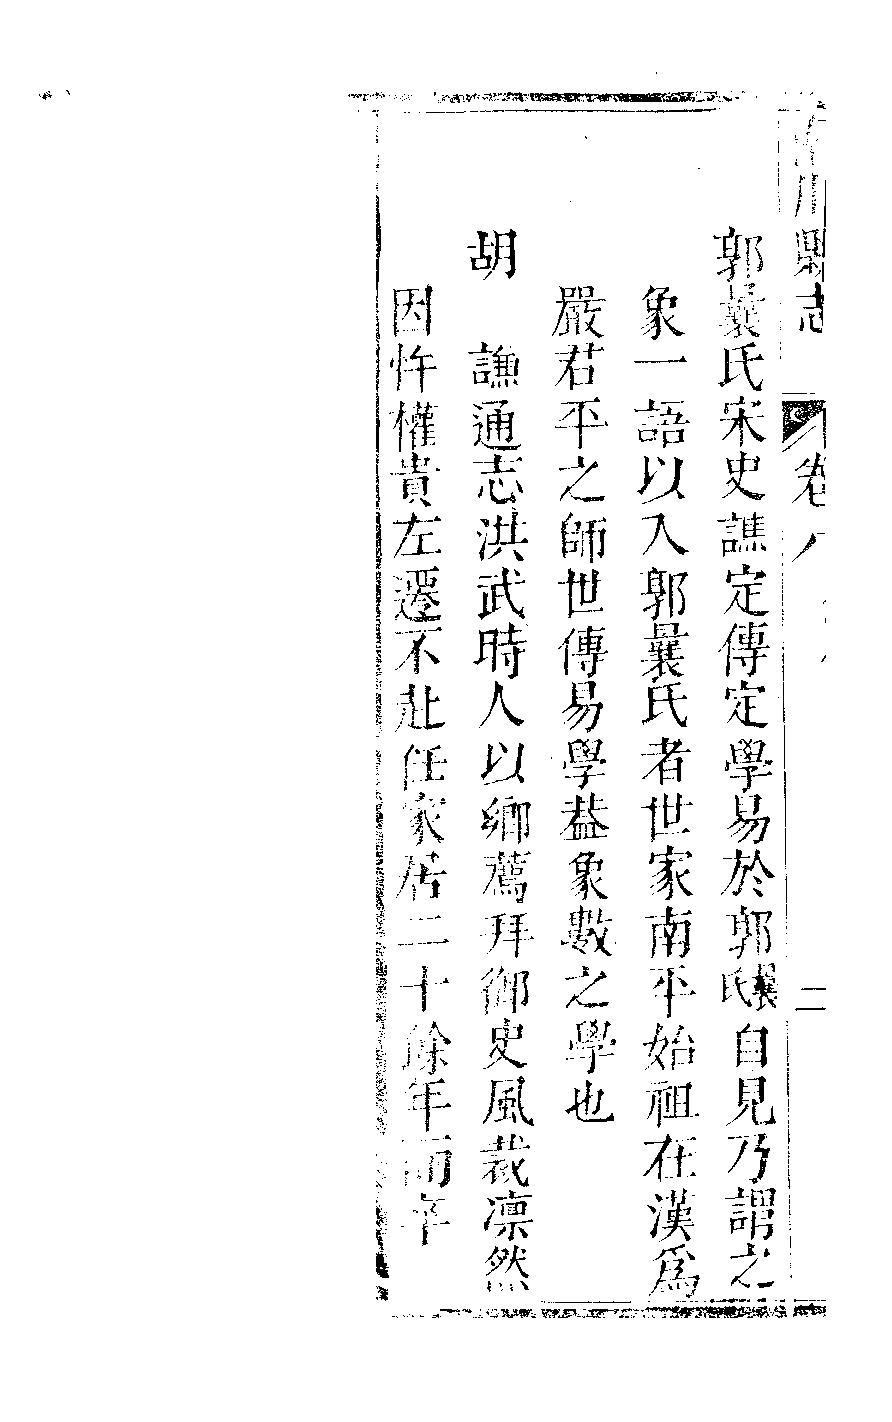 郭曩氏宋史譙定傳定學易於郭曩氏自見乃謂之
象一語以入郭曩氏者世家南平始祖在漢爲
嚴君平之師世傳易學葢象數之學也
胡　謙通志洪武時人以鄉薦拜御史風裁凛然
因忤權貴左遷不赴任家居二十餘年而卒
川縣志　卷八　二